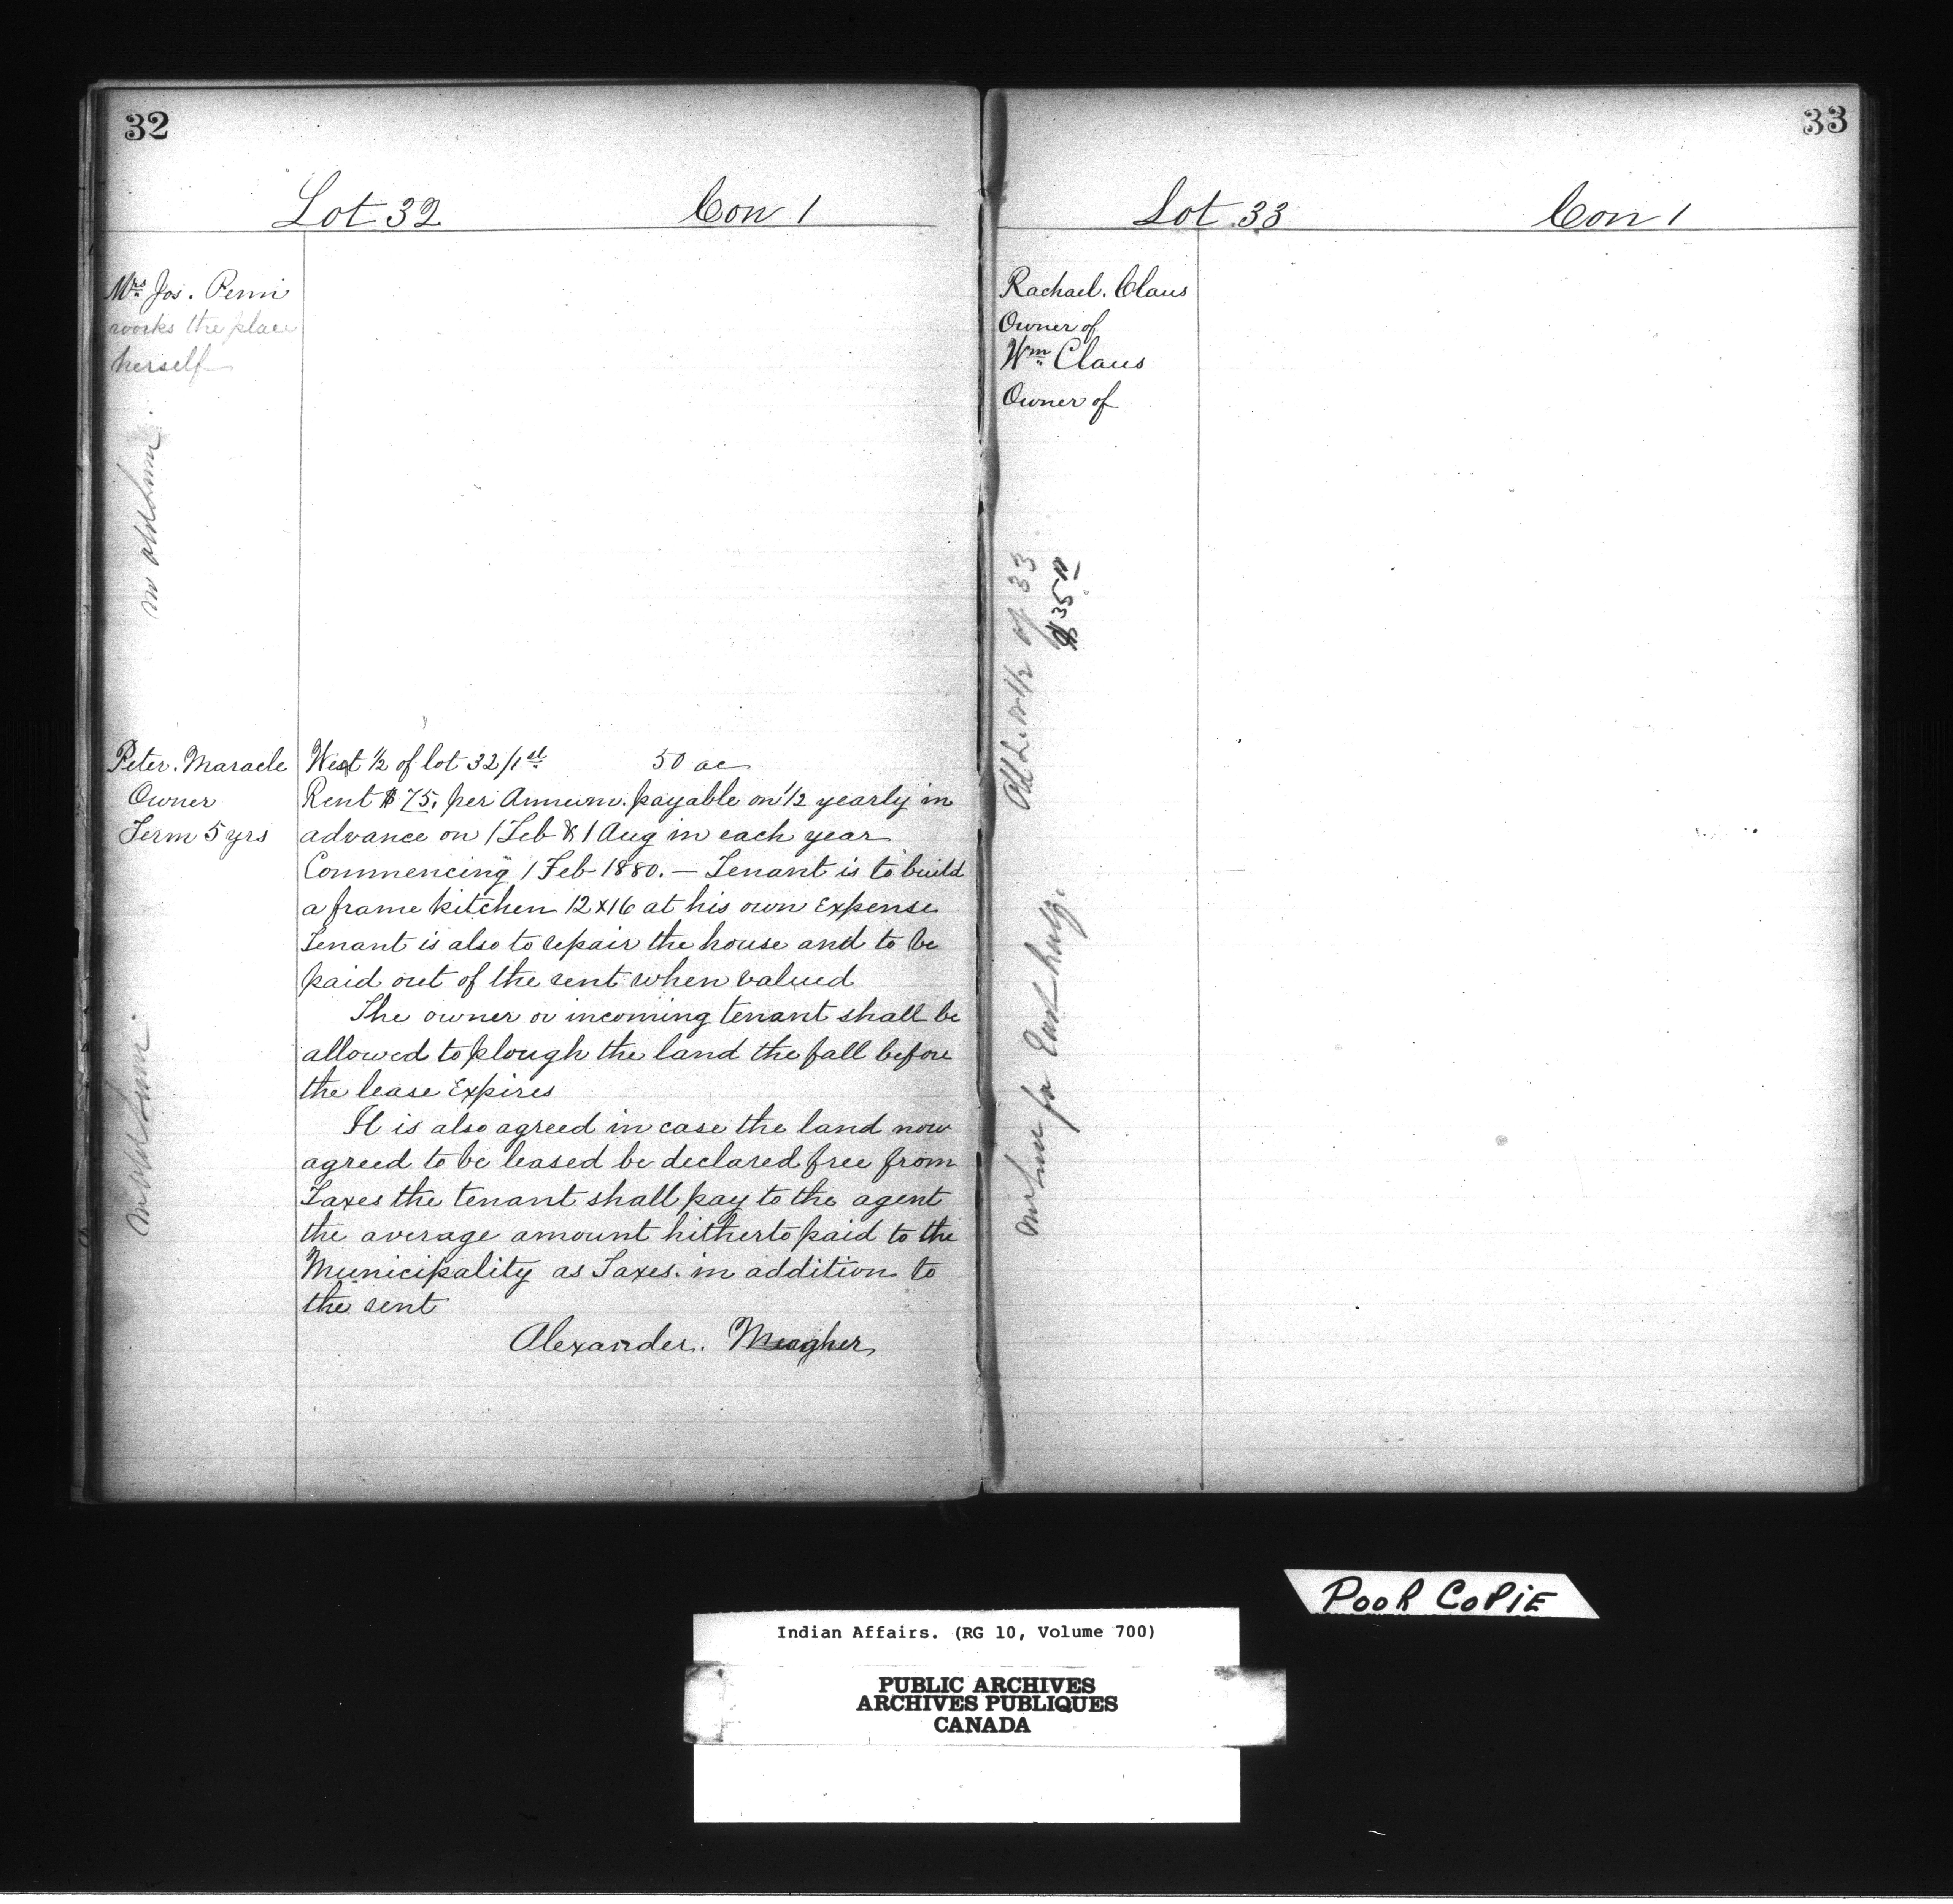 32
Lot 32 Con 1
Mrs Jos. Penn
works the place
herself
Peter. Maracle
Owner
Term 5 yrs
West 1/2 of lot 32/1st 50 ac
Rent $75. per Annum. payable on 1/2 yearly in
advance on 1 Feb & 1 Aug in each year
Commencing 1 Feb 1880. — Tenant is to build
a frame kitchen 12x16 at his own Expense
Tenant is also to repair the house and to be
paid out of the rent when valued
The owner or incoming tenant shall be
allowed to plough the land the fall before
the lease Expires
It is also agreed in case the land now
agreed to be leased be declared free from
Taxes the tenant shall pay to the agent
the average amount hitherto paid to the
Municipality as Taxes. in addition to
the rent
Alexander. Meagher
33
Lot 33 Con 1
Rachael. Claus
Owner of
Wm Claus
Owner of
of 33
$35
for East half.
POOR COPIE
Indian Affairs. (RG 10, Volume 700)
PUBLIC ARCHIVES
ARCHIVES PUBLIQUES
CANADA